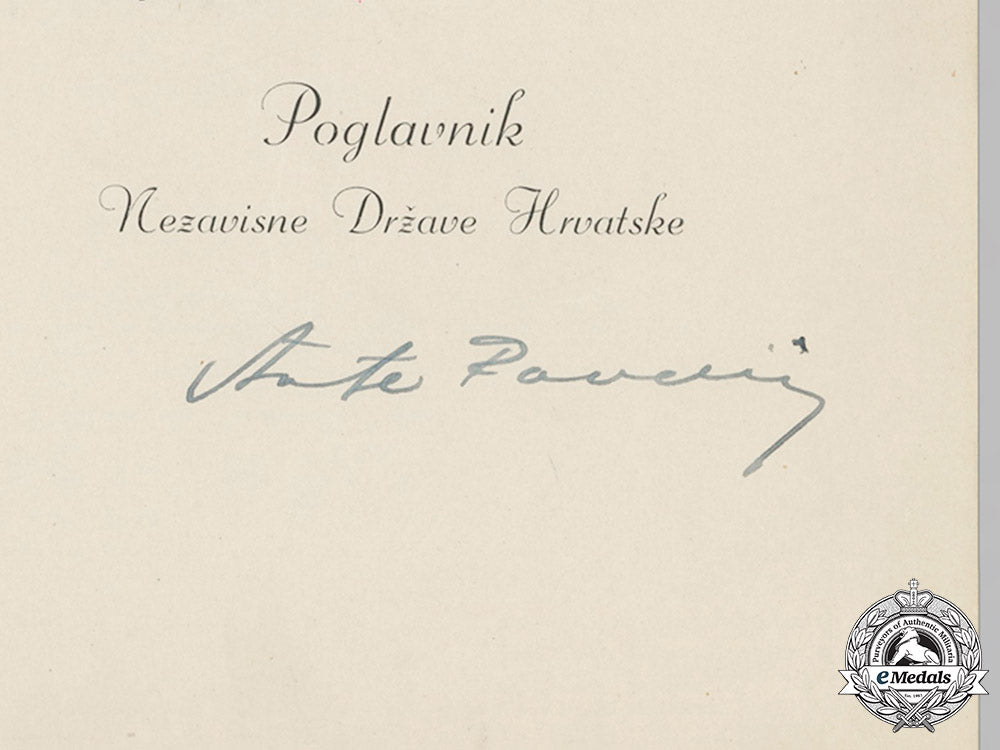 Poglavnik
Nezavisne Države Hrvatske
Ante Pavelić
Purveyors of Authentic Militaria
eMedals